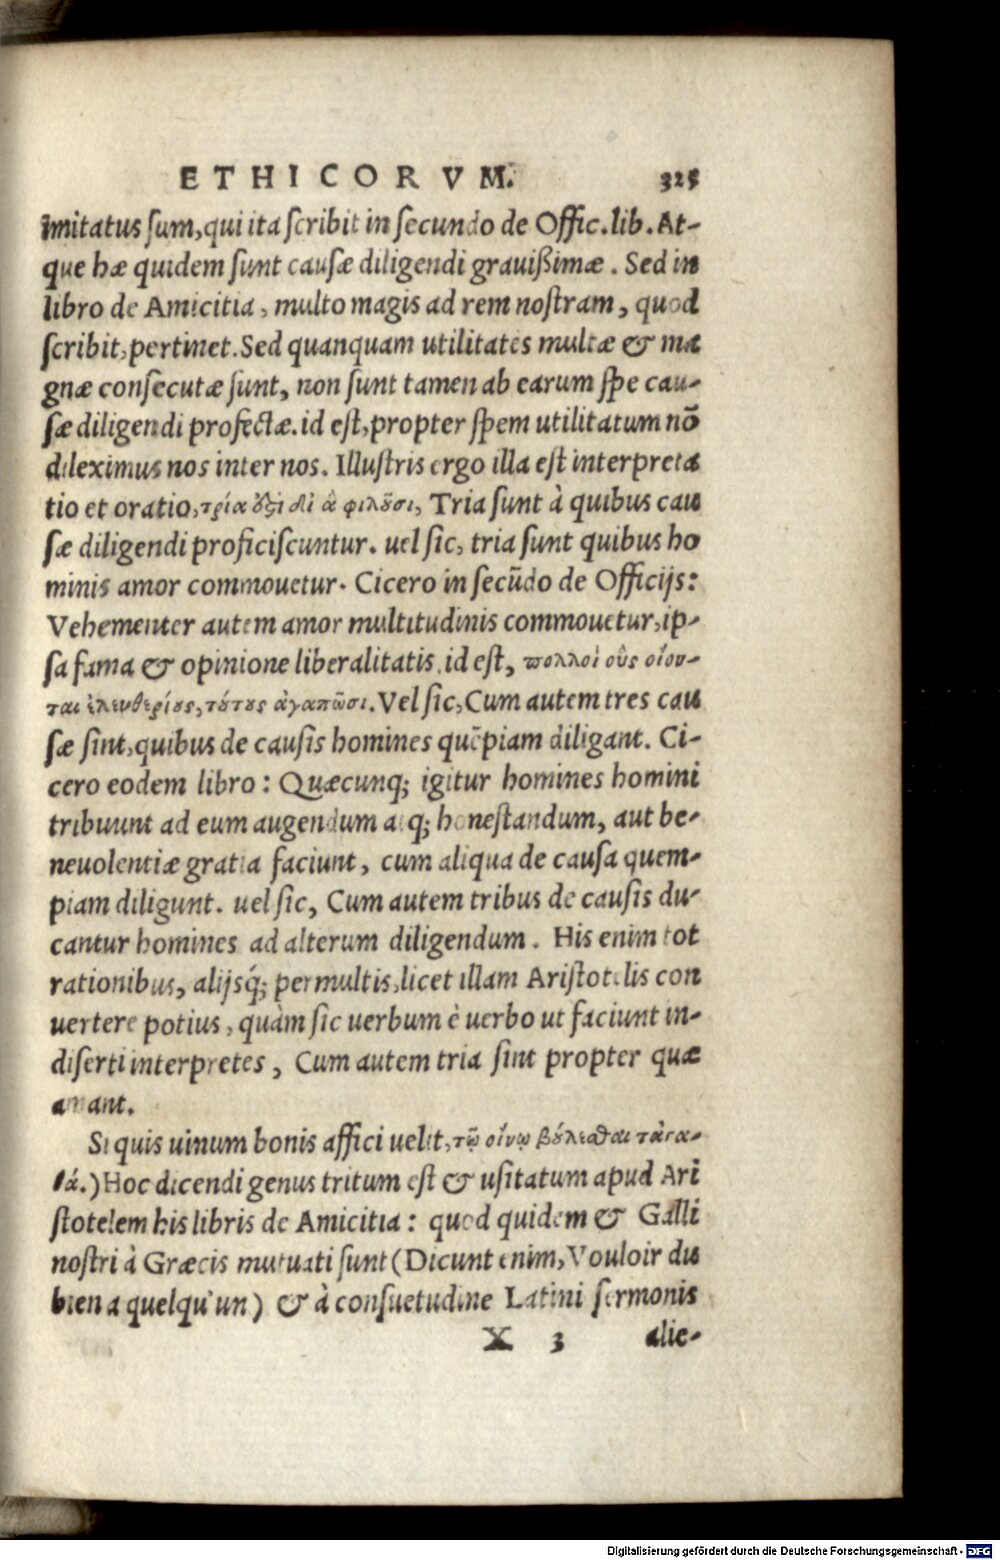 ETHICORVM. 325
imitatus sum, qui ita scribit in secundo de Offic. lib. At-
que hæ quidem sunt causæ diligendi grauißimæ. Sed in
libro de Amicitia, multo magis ad rem nostram, quod
scribit, pertinet. Sed quanquam utilitates multæ & ma
gnæ consecutæ sunt, non sunt tamen ab earum spe cau-
sæ diligendi profectæ. id est, propter spem utilitatum nō
dileximus nos inter nos. Illustris ergo illa est interpreta
tio et oratio, Tria sunt à quibus cau
sæ diligendi proficiscuntur. uel sic, tria sunt quibus ho
minis amor commouetur. Cicero in secūdo de Officijs:
Vehementer autem amor multitudinis commouetur, ip-
sa fama & opinione liberalitatis. id est, πολλοὶ οὓς οἴον-
ται ἐλευθερίους, τούτους ἀγαπῶσι. Vel sic, Cum autem tres cau
sæ sint, quibus de causis homines quēpiam diligant. Ci-
cero eodem libro: Quæcunq; igitur homines homini
tribuunt ad eum augendum atq; honestandum, aut be-
neuolentiæ gratia faciunt, cum aliqua de causa quem-
piam diligunt. uel sic, Cum autem tribus de causis du-
cantur homines ad alterum diligendum. His enim tot
rationibus, alijsq́; permultis, licet illam Aristotelis con
uertere potius, quàm sic uerbum è uerbo ut faciunt in-
diserti interpretes, Cum autem tria sint propter quæ
amant.
Si quis uinum bonis affici uelit, τῷ οἴνῳ βούλεσθαι τἀγα-
θά.) Hoc dicendi genus tritum est & usitatum apud Ari
stotelem his libris de Amicitia: quod quidem & Galli
nostri à Græcis mutuati sunt (Dicunt enim, Vouloir du
bien a quelqu'un) & à consuetudine Latini sermonis
X 3 alie-
Digitalisierung gefördert durch die Deutsche Forschungsgemeinschaft - DFG